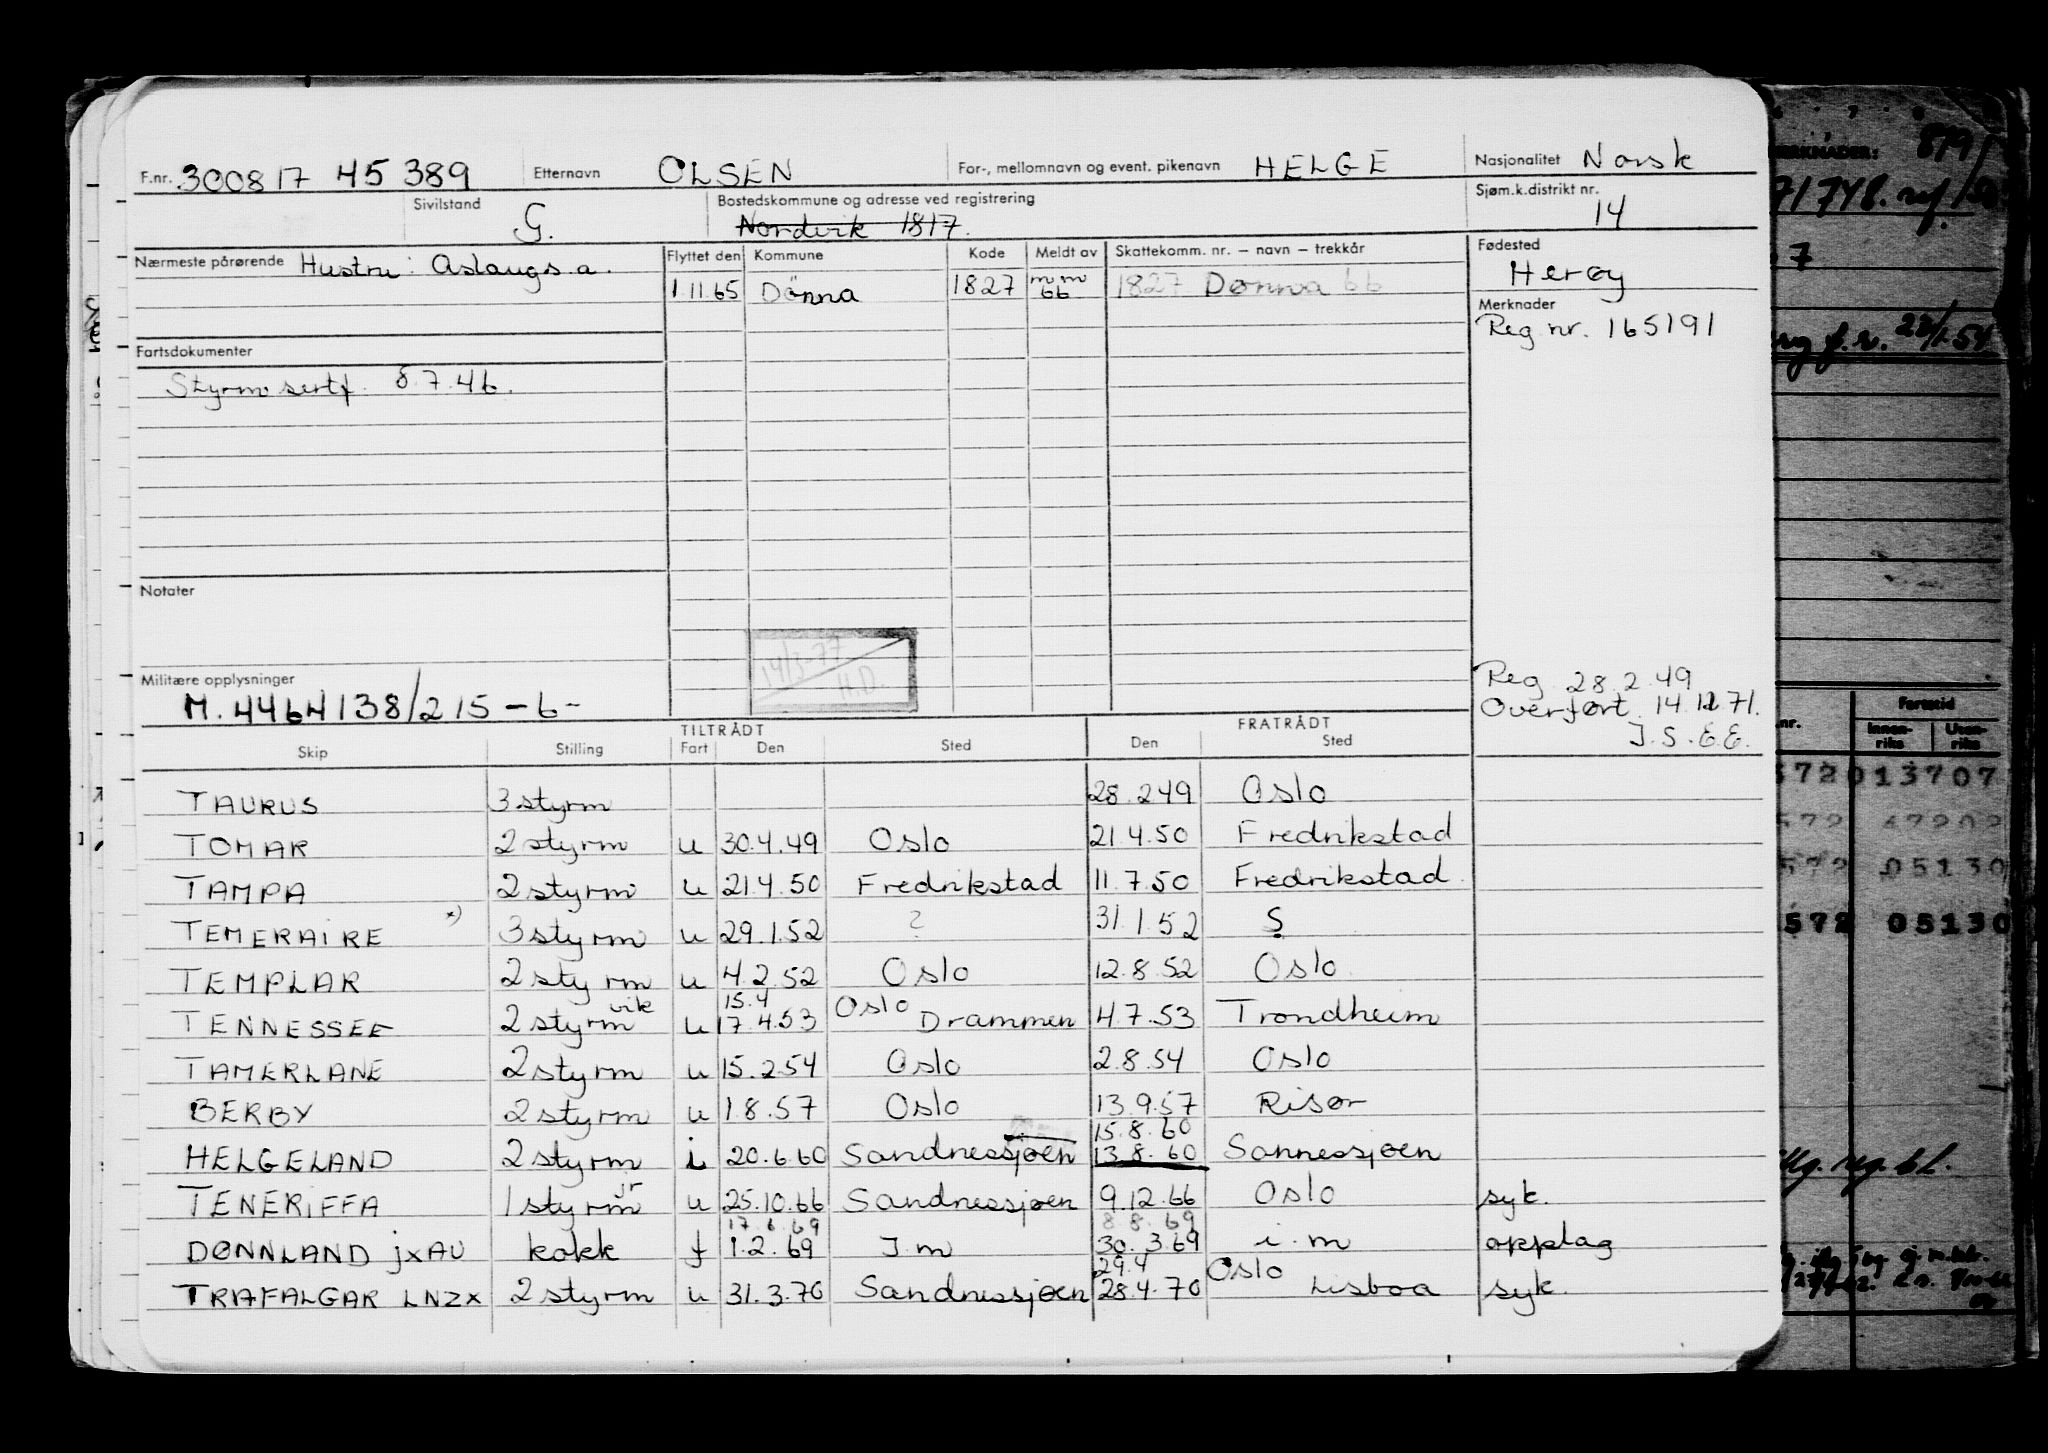 F.nr. 300817 45389 Etternavn OLSEN For-, mellomnavn og event. pikenavn HELGE Nasjonalitet Norsk
Sivilstand G. Bostedskommune og adresse ved registrering Nordvik 1817. Sjøm.k.distrikt nr. 14
Nærmeste pårørende Hustru: Aslaug s.a. Flyttet den Kommune Kode Meldt av Skattekomm. nr. – navn – trekkår Fødested
1.11.65 Dønna 1827 mm 66 1827 Dønna 66 Herøy
Merknader
Reg nr. 165191
Fartsdokumenter
Styrm. sertf. 8.7.46.
Notater
14/3-77
H.D.
Militære opplysninger
M. 4464138/215 – b –
Reg 28.2.49
Overført 14.12.71.
J.S.E.E.
TILTRÅDT FRATRÅDT
Skip Stilling Fart Den Sted Den Sted
TAURUS 3 styrm 28.2.49 Oslo
TOMAR 2 styrm u 30.4.49 Oslo 21.4.50 Fredrikstad
TAMPA 2 styrm u 21.4.50 Fredrikstad 11.7.50 Fredrikstad
TEMERAIRE x) 3 styrm u 29.1.52 ? 31.1.52 ?
TEMPLAR 2 styrm u 4.2.52 Oslo 12.8.52 Oslo
vik 15.4 Oslo
TENNESSEE 2 styrm u 17.4.53 Drammen 4.7.53 Trondheim
TAMERLANE 2 styrm u 15.2.54 Oslo 2.8.54 Oslo
BERBY 2 styrm u 1.8.57 Oslo 13.9.57 Risør
15.8.60
HELGELAND 2 styrm i 20.6.60 Sandnessjøen 13.8.60 Sannessjøen
TENERIFFA 1 styrm jr u 25.10.66 Sandnessjøen 9.12.66 Oslo syk.
17.6.69 8.8.69
DØNNLAND jxAU kokk f 1.2.69 I.m 30.3.69 i.m opplag
29.4 Oslo
TRAFALGAR LNZX 2 styrm u 31.3.70 Sandnessjøen 28.4.70 Lisboa syk.
MERKNADER:
nr. Fartstid
Innen-riks Uten-riks
572 013707
572 47202
572 05130
572 05130